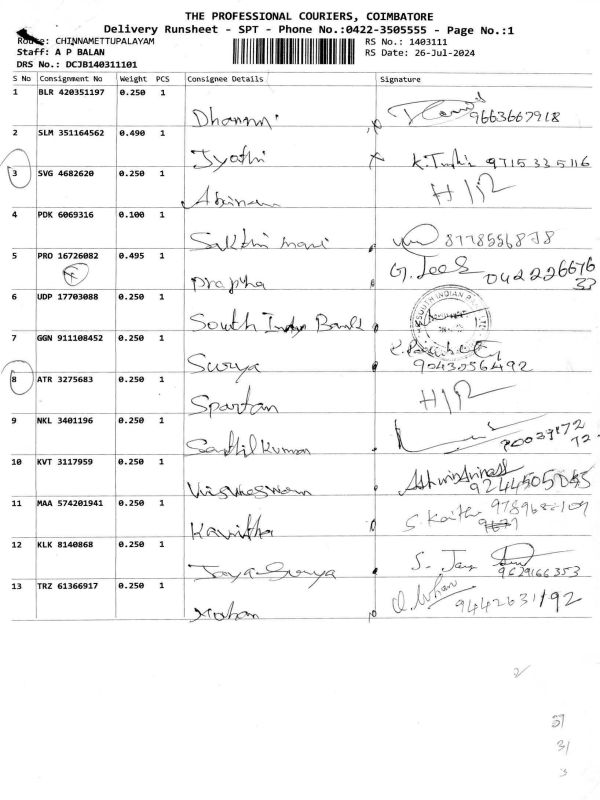 THE PROFESSIONAL COURIERS, COIMBATORE
Delivery Runsheet - SPT - Phone No.:0422-3505555 - Page No.:1
Route: CHINNAMETTUPALAYAM
RS No.: 1403111
Staff: A P BALAN
RS Date: 26-Jul-2024
DRS No.: DCJB140311101
S No Consignment No Weight PCS Consignee Details Signature
1 BLR 420351197 0.250 1
Dhanam 9663667918
2 SLM 351164562 0.490 1
Jyothi 9715335116
3 SVG 4682620 0.250 1
4 PDK 6069316 0.100 1
Sakthi mani
5 PRO 16726082 0.495 1
6 UDP 17703088 0.250 1
South Indian Bank
SOUTH INDIAN BANK
7 GGN 911108452 0.250 1
Surya 9043056492
8 ATR 3275683 0.250 1
Spartan
9 NKL 3401196 0.250 1
Senthil Kumar
10 KVT 3117959 0.250 1
11 MAA 574201941 0.250 1
Kavitha
12 KLK 8140868 0.250 1
Jaya Surya 9629166353
13 TRZ 61366917 0.250 1
Mohan 9442631192
31
3